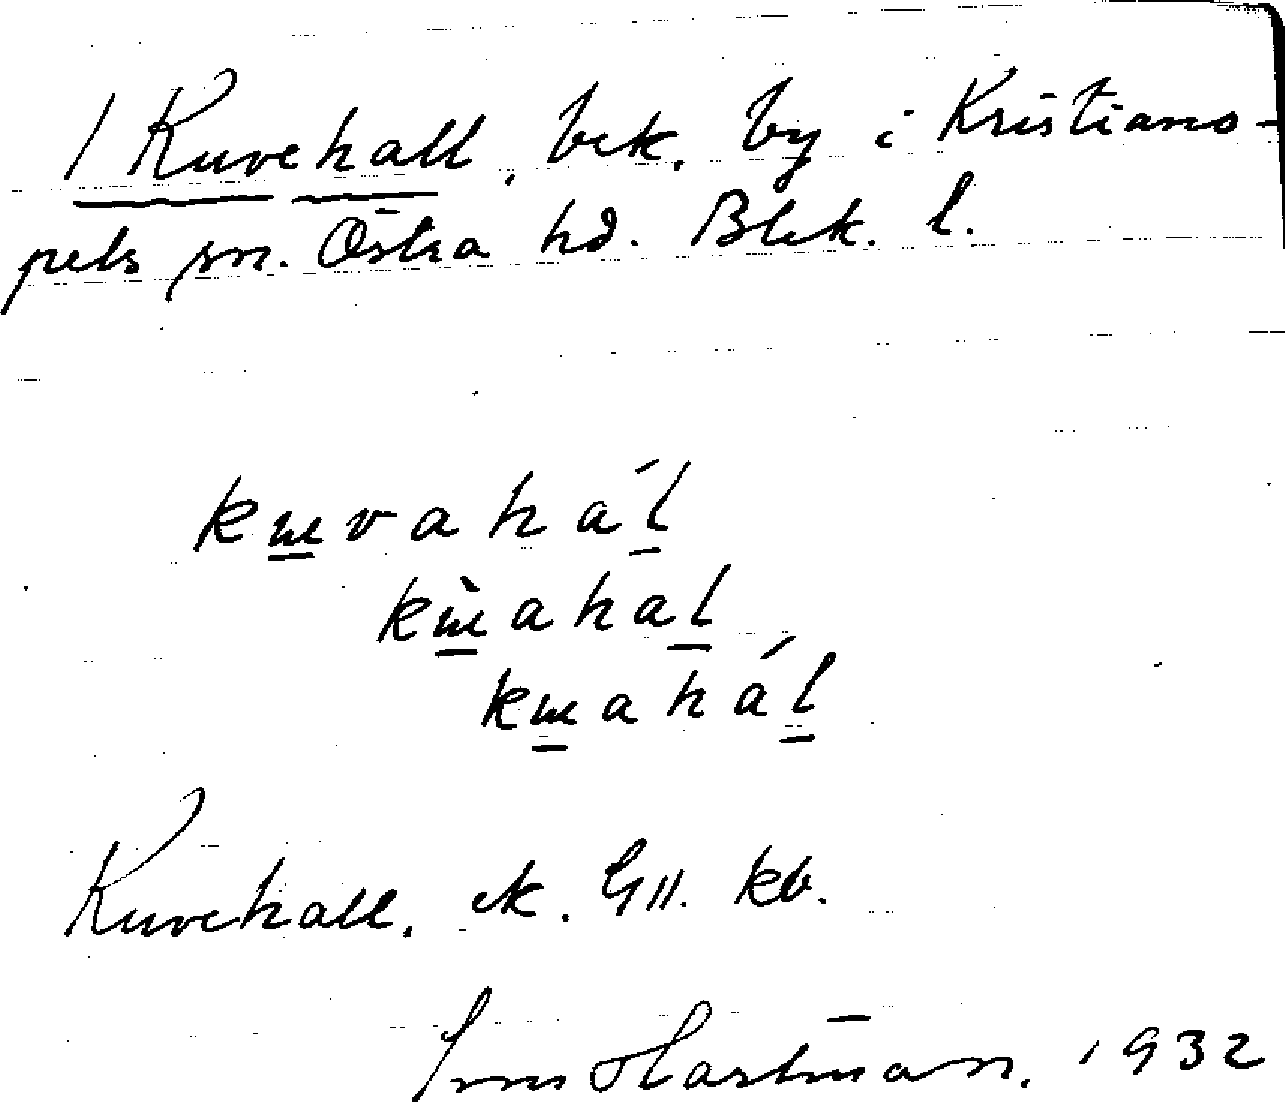 / Kuvehall, bek. by i Kristiano-
pels sn. Östra hd. Blek. l.
kɯvahál
kɯ̀ahal
kɯahál
Kuvehall. ek. Gll. kb.
Hartman. 1932